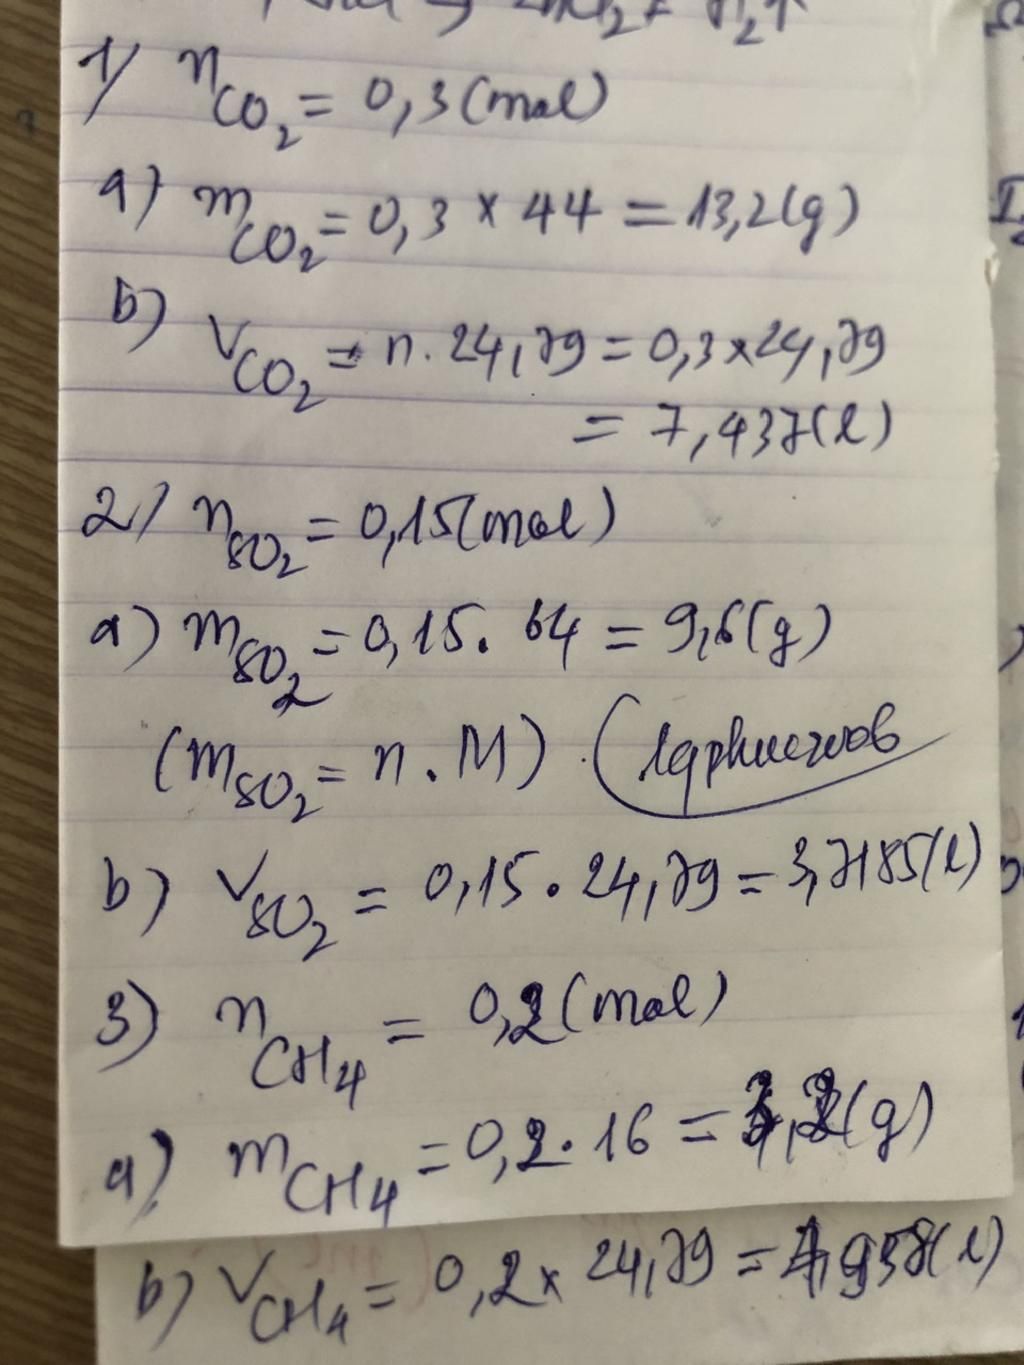 → ZnCl₂ + H₂↑
1/ n CO₂ = 0,3 (mol)
a) m CO₂ = 0,3 × 44 = 13,2 (g)
b) V CO₂ = n . 24,79 = 0,3 × 24,79
= 7,437 (l)
2/ n SO₂ = 0,15 (mol)
a) m SO₂ = 0,15 . 64 = 9,6 (g)
(m SO₂ = n . M) (
b) V SO₂ = 0,15 . 24,79 = 3,7185 (l)
3) n CH₄ = 0,2 (mol)
a) m CH₄ = 0,2 . 16 = 3,2 (g)
b) V CH₄ = 0,2 × 24,79 = 4,958 (l)